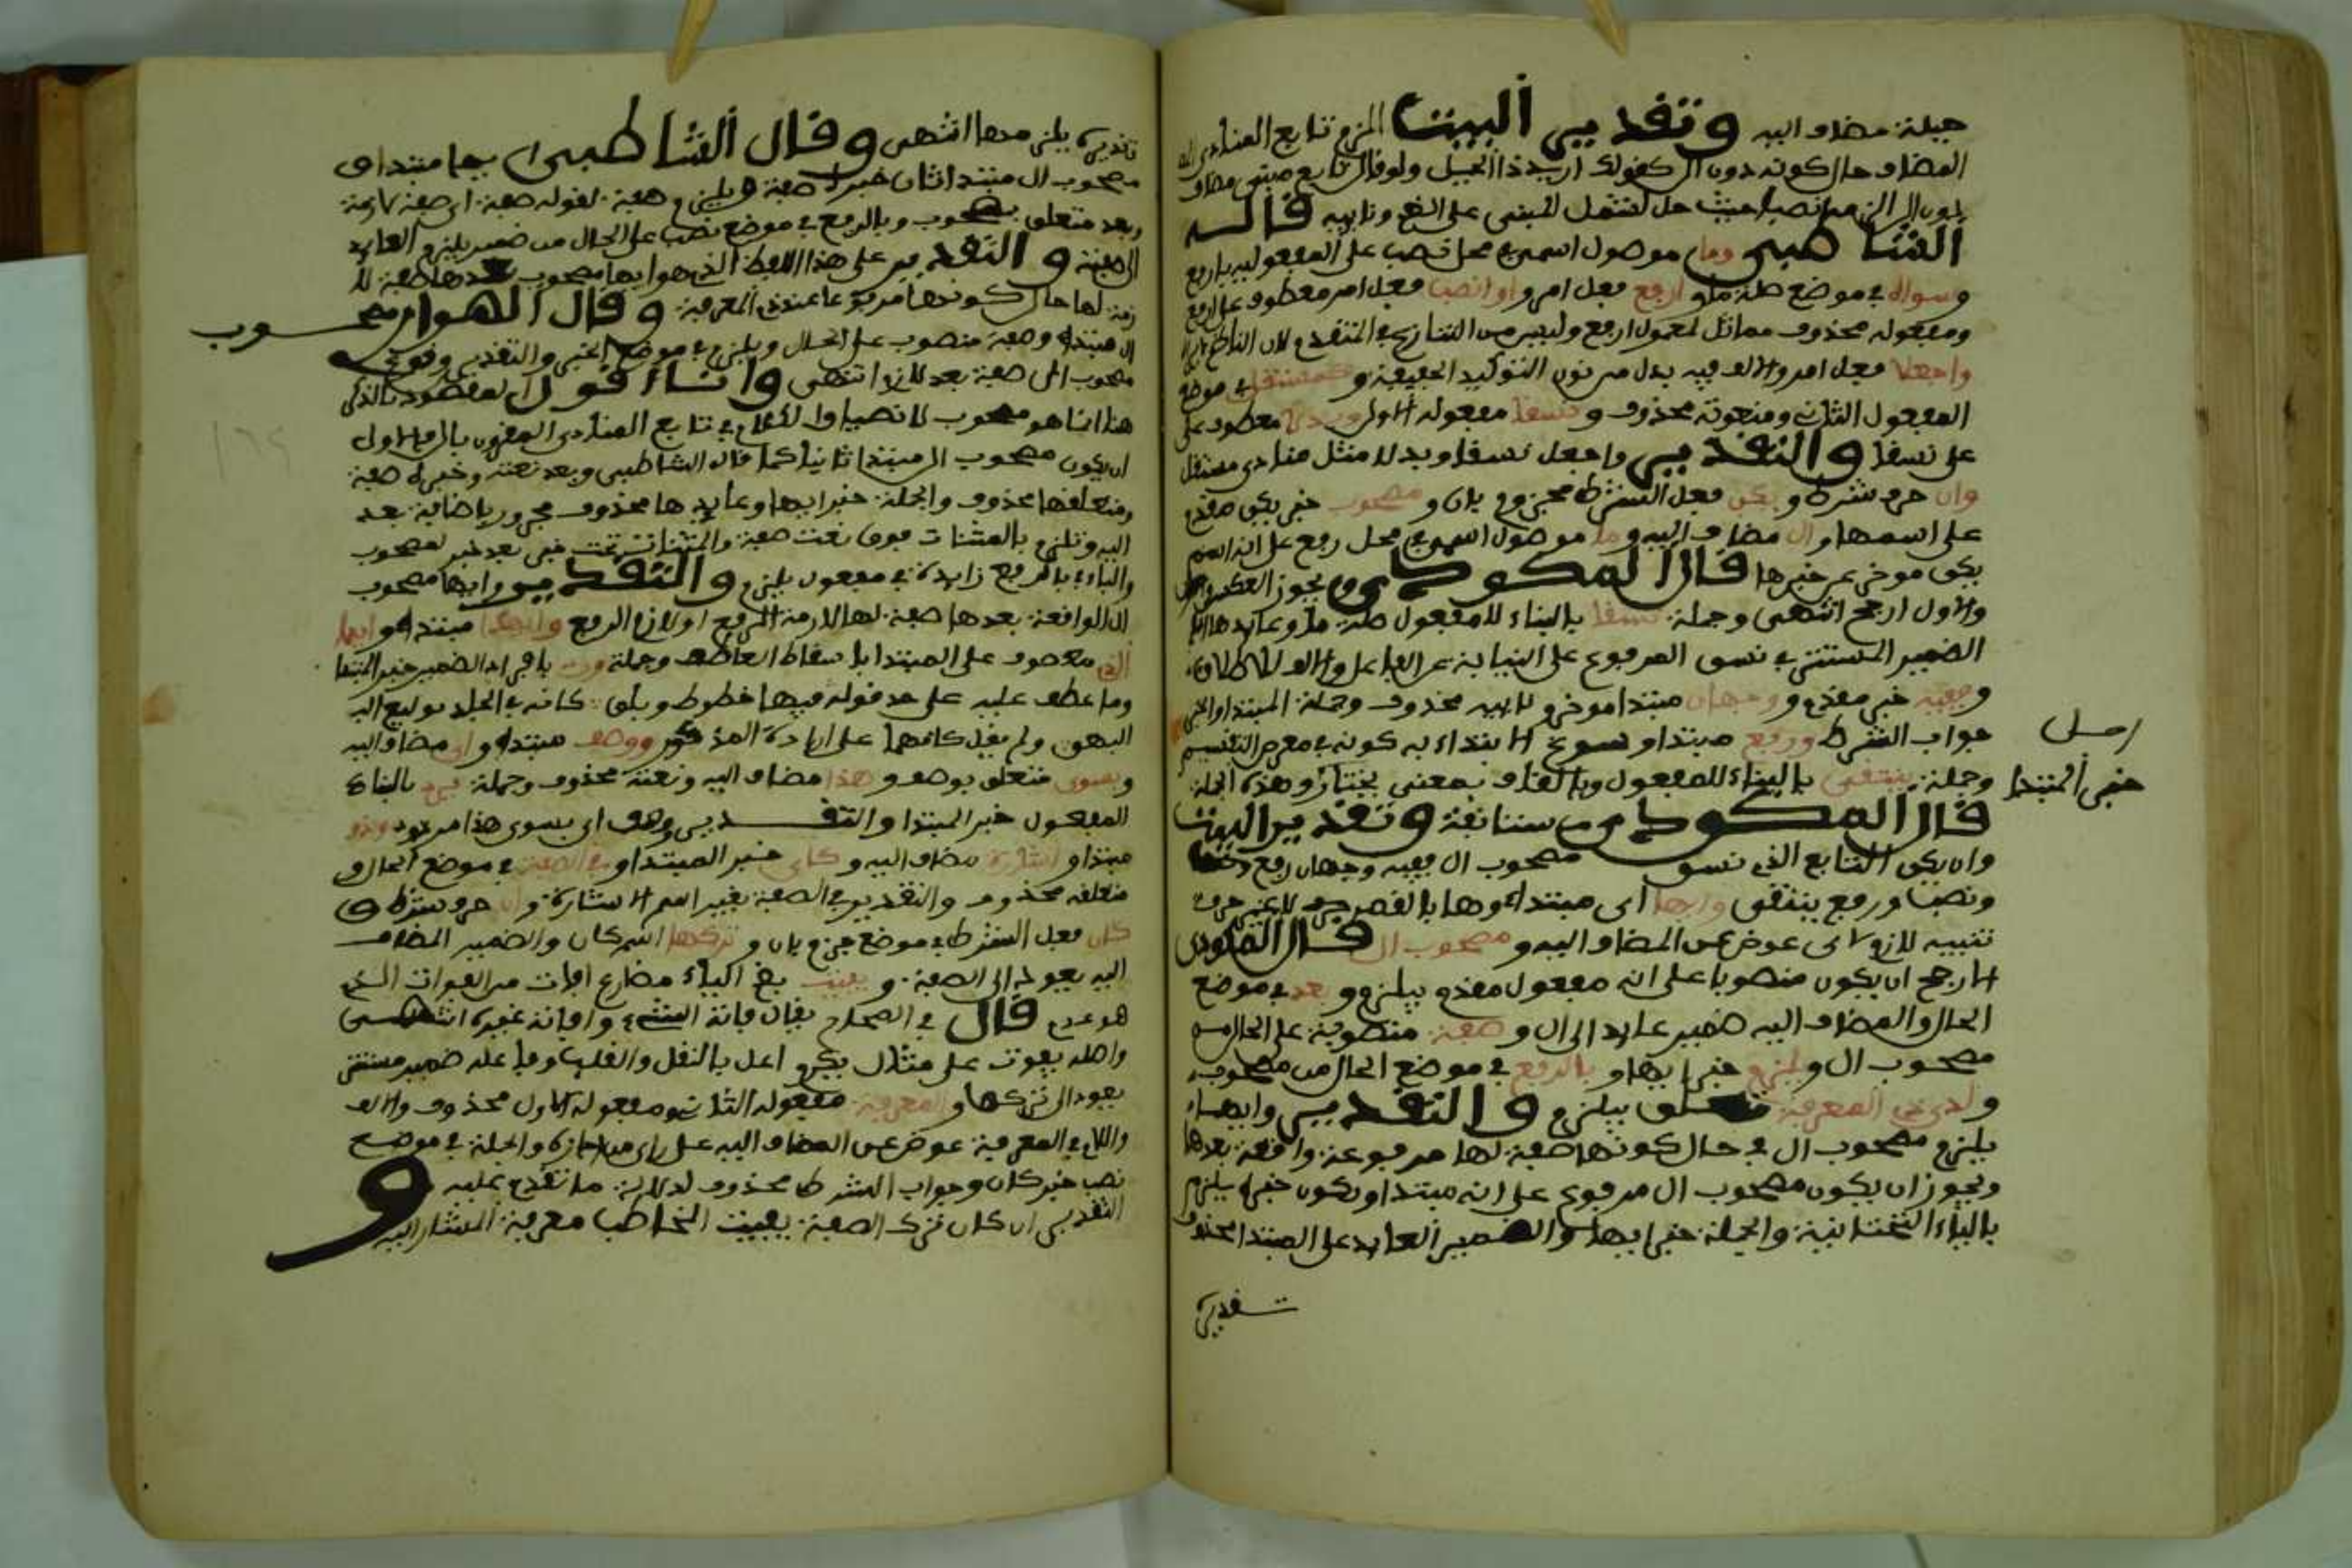 جملة مضاف اليه وتقدير البيت الزم تابع المنادى
المضاف حال كونه دون ال كقولك ازيد ذا الحيل ولو قال تابع مبني مضاف
دون ال الزمه نصبا حيث حل لشمل المبني على الضم ونايبه قاله
الشاطبي وما موصول اسمي في محل نصب على المفعولية بارفع
وسواه في موضع صلة ما وارفع فعل امر واو انصب فعل امر معطوف على ارفع
ومفعوله محذوف مماثل لمعمول ارفع وليس من التنازع في المتقدم لان
واجعلا فعل امر والالف فيه بدل من نون التوكيد الخفيفة وكمستقل في موضع
المفعول الثاني ومنعوته محذوف ونسقا مفعوله الاول وبدلا معطوف على
على نسقا والتقدير واجعل نسقا وبدلا مثل منادى مستقل
وان حرف شرط ويكن فعل الشرط مجزوم بان ومصحوب خبر يكن مقدم
على اسمها وال مضاف اليه وما موصول اسمي في محل رفع على انه اسم
يكن موخر عن خبرها قال المكودي ويجوز العكس
والاول ارجح انتهى وجملة نسقا بالبناء للمفعول صلة ما وعايدها
الضمير المستتر في نسق المرفوع على النيابة عن الفاعل والالف للاطلاق
وففيه خبر مقدم ووجهان مبتدا موخر و محذوف وجملة المبتدا والخبر
جواب الشرط ورفع مبتدا وسوغ الابتداء به كونه في معرض التقسيم
وجملة ينتقى بالبناء للمفعول وبالقاف بمعنى يختار وهذه الجملة
اصل
خبر المبتدا
قال المكودي مستانفة وتقدير البيت
وان يكن التابع الذي نسق مصحوب ال ففيه وجهان رفع
ونصب ورفع ينتقى وايها اى مبتدا وها بالقصر حرف
تنبيه لازم لاى عوض عن المضاف اليه ومصحوب ال قال المكودي
الارجح ان يكون منصوبا على انه مفعول مقدم بيلزم وبعد في موضع
الحال والمضاف اليه ضمير عايد الى ال وصفة منصوبة على الحال من
مصحوب ال ويلزم خبر ايها وبالرفع في موضع الحال من مصحوب
ولدى ذي المعرفة متعلق بيلزم والتقدير وايها
يلزم مصحوب ال في حال كونها صفة لها مرفوعة واقعة بعدها
ويجوز ان يكون مصحوب ال مرفوع على انه مبتدا ويكون خبره يلزم
بالياء التحتانية والجملة خبر ايها والضمير العايد على المبتدا محذوف
تقديره
تقديره يلزمها انتهى وقال الشاطبي ايها مبتدا و
مصحوب ال مبتدا ثان خبره صفة ويلزم صفة لقوله صفة اى صفة لازمة
وبعد متعلق بمصحوب وبالرفع في موضع نصب على الحال من ضمير يلزم العايد
الى صفة والتقدير على هذا اللفظ الذي هو ايها مصحوب بعدها صفة لا
زمة لها حال كونها مرفوعا عند ذي المعرفة وقال الهواري مصحوب
ال مبتدا وصفة منصوب على الحال ويلزم في موضع الخبر والتقدير وقوع
مصحوب ال صفة بعد لازم انتهى وانا اقول ان المقصود بالذكر
هنا انما هو مصحوب لانصبا والكلام في تابع المنادى المقرون بال فالاولى
ان يكون مصحوب ال مبتدا ثانيا كما قال الشاطبي وبعد نعته وخبره صفة
ومتعلقها محذوف والجملة خبر ايها وعايدها محذوف مجرور باضافة بعد
اليه وتلزم بالمثناة فوق نعت صفة والمثناة تحت خبر بعد خبر لمصحوب
والباء في بالرفع زايدة في مفعول يلزم والتقدير وايها مصحوب
ال الواقعة بعدها صفة لها لازمة الرفع او لازم الرفع وايهذا مبتدا وايها
الذي معطوف على المبتدا باسقاط العاطف وجملة ورد بافراد الضمير خبر المبتدا
وما عطف عليه على حد قوله فيها خطوط وبلق كانه في الجلد توليع
البهق ولم يقل كانهما على ارادة المذكور ووصف مبتدا واى مضاف اليه
وبسوى متعلق بوصف وهذا مضاف اليه ونعته محذوف وجملة يرد بالبناء
للمفعول خبر المبتدا والتقدير ووصف اى بسوى هذا مردود وذو
مبتدا واشارة مضاف اليه وكاى خبر المبتدا وفي الصفة في موضع الحال و
متعلقه محذوف والتقدير في الصفة بغير اسم الاشارة وان حرف شرط و
كان فعل الشرط في موضع جزم بان وتركها اسم كان والضمير المضاف
اليه يعود الى الصفة ويفيت بضم الياء مضارع افات من الفوات الذي
هو عدم قال في الصحاح يقال فاته الشيء وافاته غيره انتهى
واصله يفوت على مثال يكرم اعل بالنقل والقلب وفاعله ضمير مستتر
يعود الى تركها والمعرفة مفعوله الثاني ومفعوله الاول محذوف والالف
واللام في المعرفة عوض عن المضاف اليه على راى من اجازه والجملة في موضع
نصب خبر كان وجواب الشرط محذوف لدلالة ما تقدم عليه و
التقدير ان كان ترك الصفة يفيت المخاطب معرفة المشار اليه